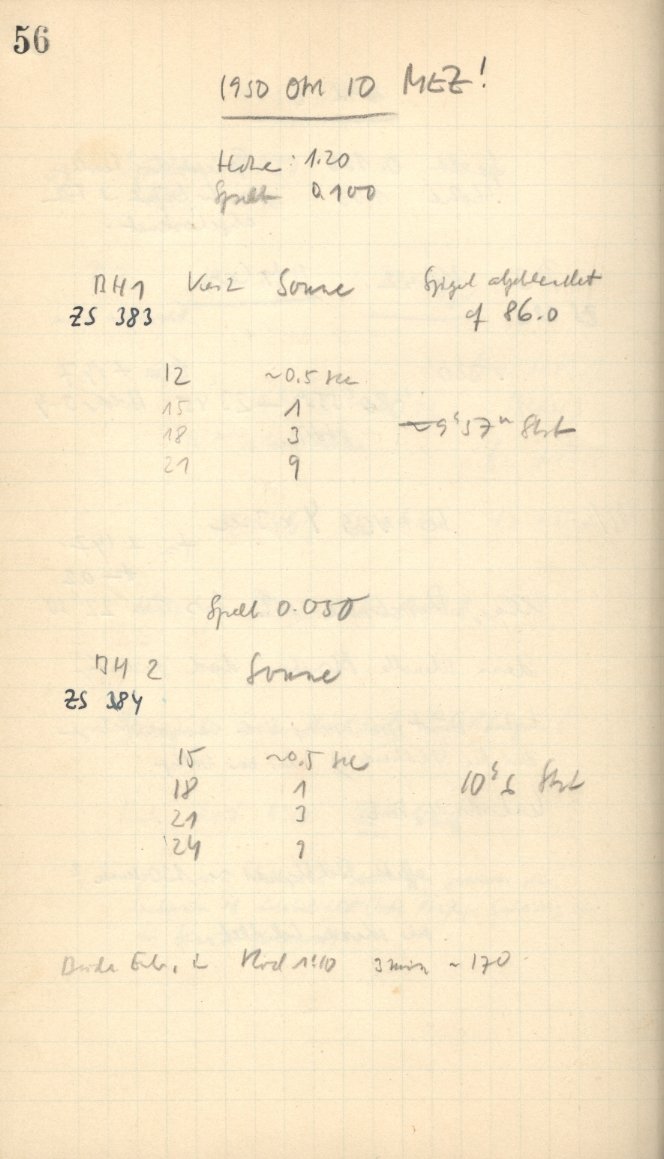 56
1950 Okt 10 MEZ!
Höhe: 1.20
Spalt 0.100
BH1 Sonne Spiegel abgeblendet
ZS 383 auf 86.0
12 ~0.5 sec
15 1
18 3 ~9h57m
21 9
Spalt 0.050
BH 2 Sonne
ZS 384
15 ~0.5 sec
18 1 10h6
21 3
24 9
Beide in Rod 1:10 3 min ~170